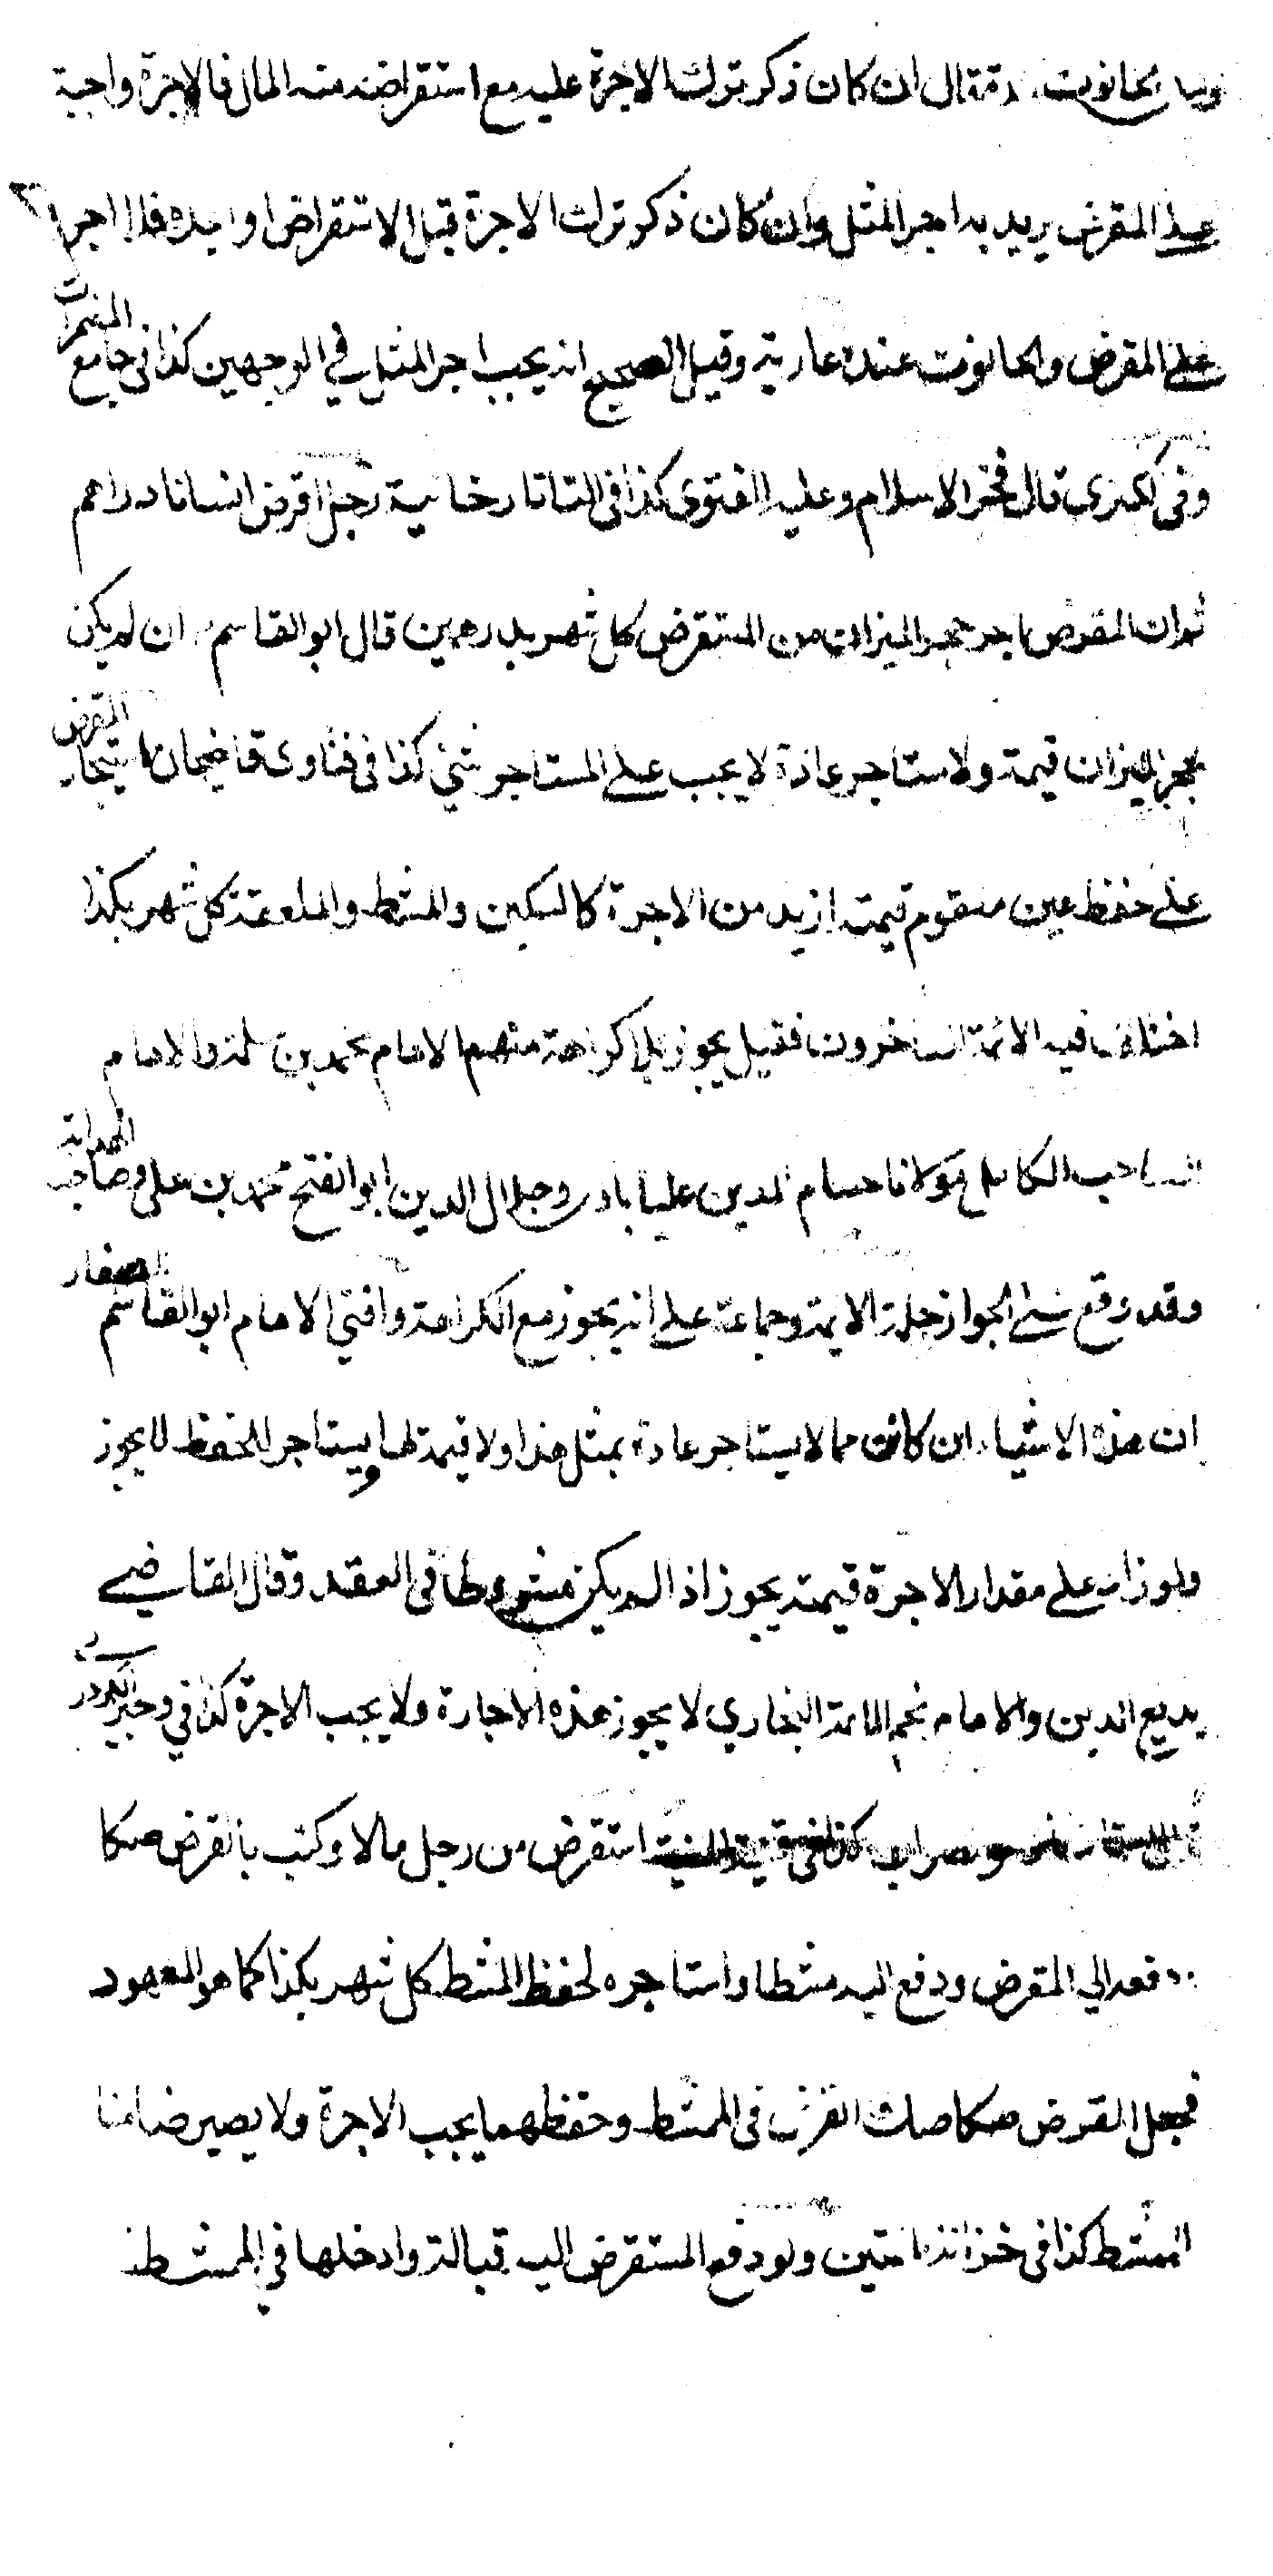 الحانوت قال ان كان ذكر ترك الاجرة عليه مع استقراضه منه المال فالاجرة واجبة
على المقرض يريد به اجر المثل وان كان ذكر ترك الاجرة قبل الاستقراض او بعده فلا اجر
على المقرض والحانوت عنده عارية وقيل الصحيح انه يجب اجر المثل في الوجهين كذا في جامع المضمرات
وفي الكبرى قال فخر الاسلام وعليه الفتوى كذا في التاتارخانية رجل اقرض انسانا دراهم
ثم ان المقرض اجر حجر الميزان من المستقرض كل شهر بدرهمين قال ابو القاسم ان لم يكن
لحجر الميزان قيمة ولا يستاجر عادة لا يجب على المستاجر شئ كذا في فتاوى قاضيخان استيجار المقرض
على حفظ عين متقوم قيمته ازيد من الاجرة كالسكين والمشط والملعقة كل شهر بكذا
اختلف فيه الائمة المتاخرون فقيل يجوز بلا كراهة منهم الامام محمد بن سلمة والامام
صاحب الكامل مولانا حسام الدين عليابادى وجلال الدين ابو الفتح محمد بن على وصاحب الهداية
وقد وقع على الجواز جلة الايمة وجماعة على انه يجوز مع الكراهة وافتى الامام ابو القاسم الصفار
ان هذه الاشياء ان كانت مما لا يستاجر عادة بمثل هذا ولا قيمة لها ويستاجر للحفظ لا يجوز
ولو زاد على مقدار الاجرة قيمته يجوز اذا لم يكن مشروطا في العقد وقال القاضي
بديع الدين والامام نجم الائمة البخاري لا يجوز هذه الاجارة ولا يجب الاجرة كذا في وجيز الكردرى
كذا في قنية المنية استقرض من رجل مالا وكتب بالقرض صكا
دفعه الي المقرض ودفع اليه مشطا واستاجره لحفظ المشط كل شهر بكذا كما هو المعهود
فجعل المقرض صكا صك القرض في الممشط وحفظهما يجب الاجرة ولا يصير ضامنا
الممشط كذا في خزانة المفتين ولو دفع المستقرض اليه قبالة وادخلها في الممشط